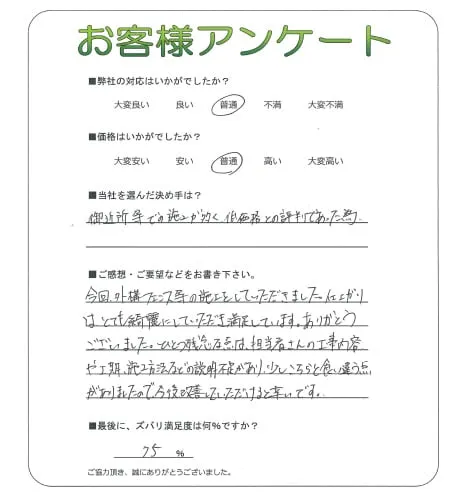 お客様アンケート
■弊社の対応はいかがでしたか？
大変良い 良い 普通 不満 大変不満
■価格はいかがでしたか？
大変安い 安い 普通 高い 大変高い
■当社を選んだ決め手は？
御近所等での施工が多く、低価格との評判であった為。
■ご感想・ご要望などをお書き下さい。
今回、外構フェンス等の施工をしていただきました。仕上がり
はとても綺麗にしていただき満足しています。ありがとう
ございました。ひとつ残念な点は、担当者さんの工事内容
や工期、施工方法などの説明不足があり、少しこちらと食い違う点
がありましたので今後改善していただけると幸いです。
■最後に、ズバリ満足度は何％ですか？
75 %
ご協力頂き、誠にありがとうございました。